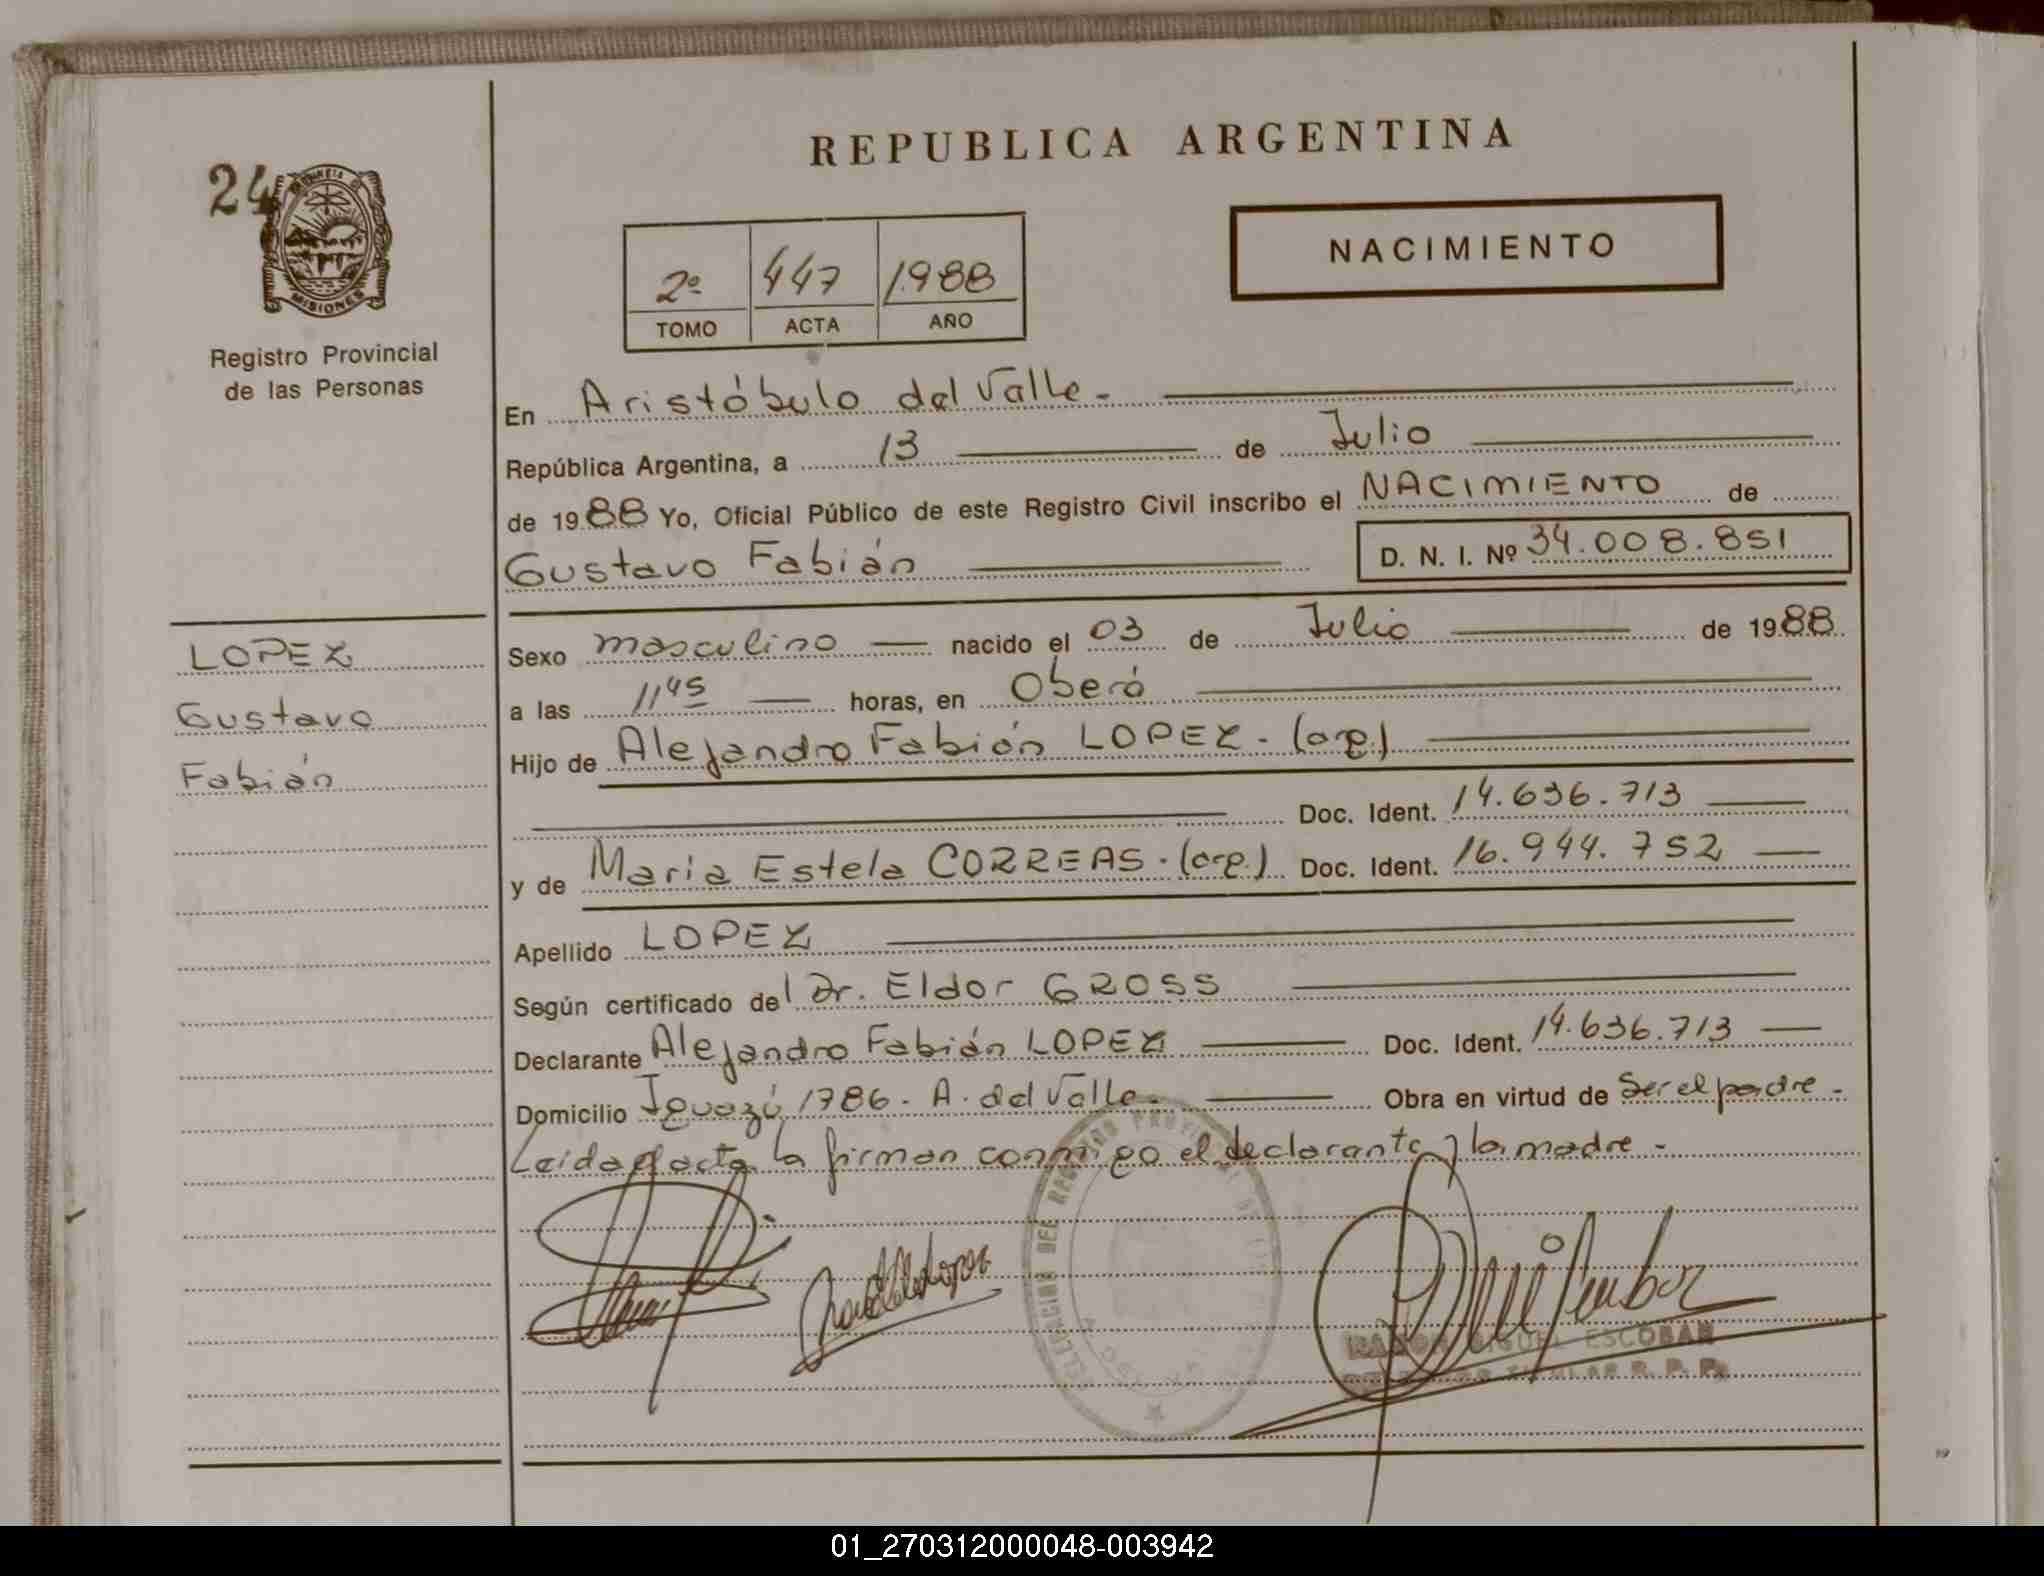 REPUBLICA ARGENTINA
24
MISIONES
Registro Provincial
de las Personas
2º 447 1988
TOMO ACTA AÑO
NACIMIENTO
En Aristóbulo del Valle.-
República Argentina, a 13 de Julio
de 1988 Yo, Oficial Público de este Registro Civil inscribo el NACIMIENTO de
Gustavo Fabián D. N. I. Nº 34.008.851
LOPEZ
Gustavo
Fabián
Sexo masculino nacido el 03 de Julio de 1988
a las 11 45 horas, en Oberá
Hijo de Alejandro Fabián LOPEZ - (arg.)
Doc. Ident. 14.636.713
y de Maria Estela CORREAS.(arg.) Doc. Ident. 16.944.752
Apellido LOPEZ
Según certificado del Dr. Eldor GROSS
Declarante Alejandro Fabián LOPEZ Doc. Ident. 14.636.713
Domicilio Iguazú 1786. A. del Valle. Obra en virtud de Ser el padre.-
Leida el acta la firman conmigo el declarante y la madre.-
RAMON MIGUEL ESCOBAR
TITULAR R. P. P.
01_270312000048-003942